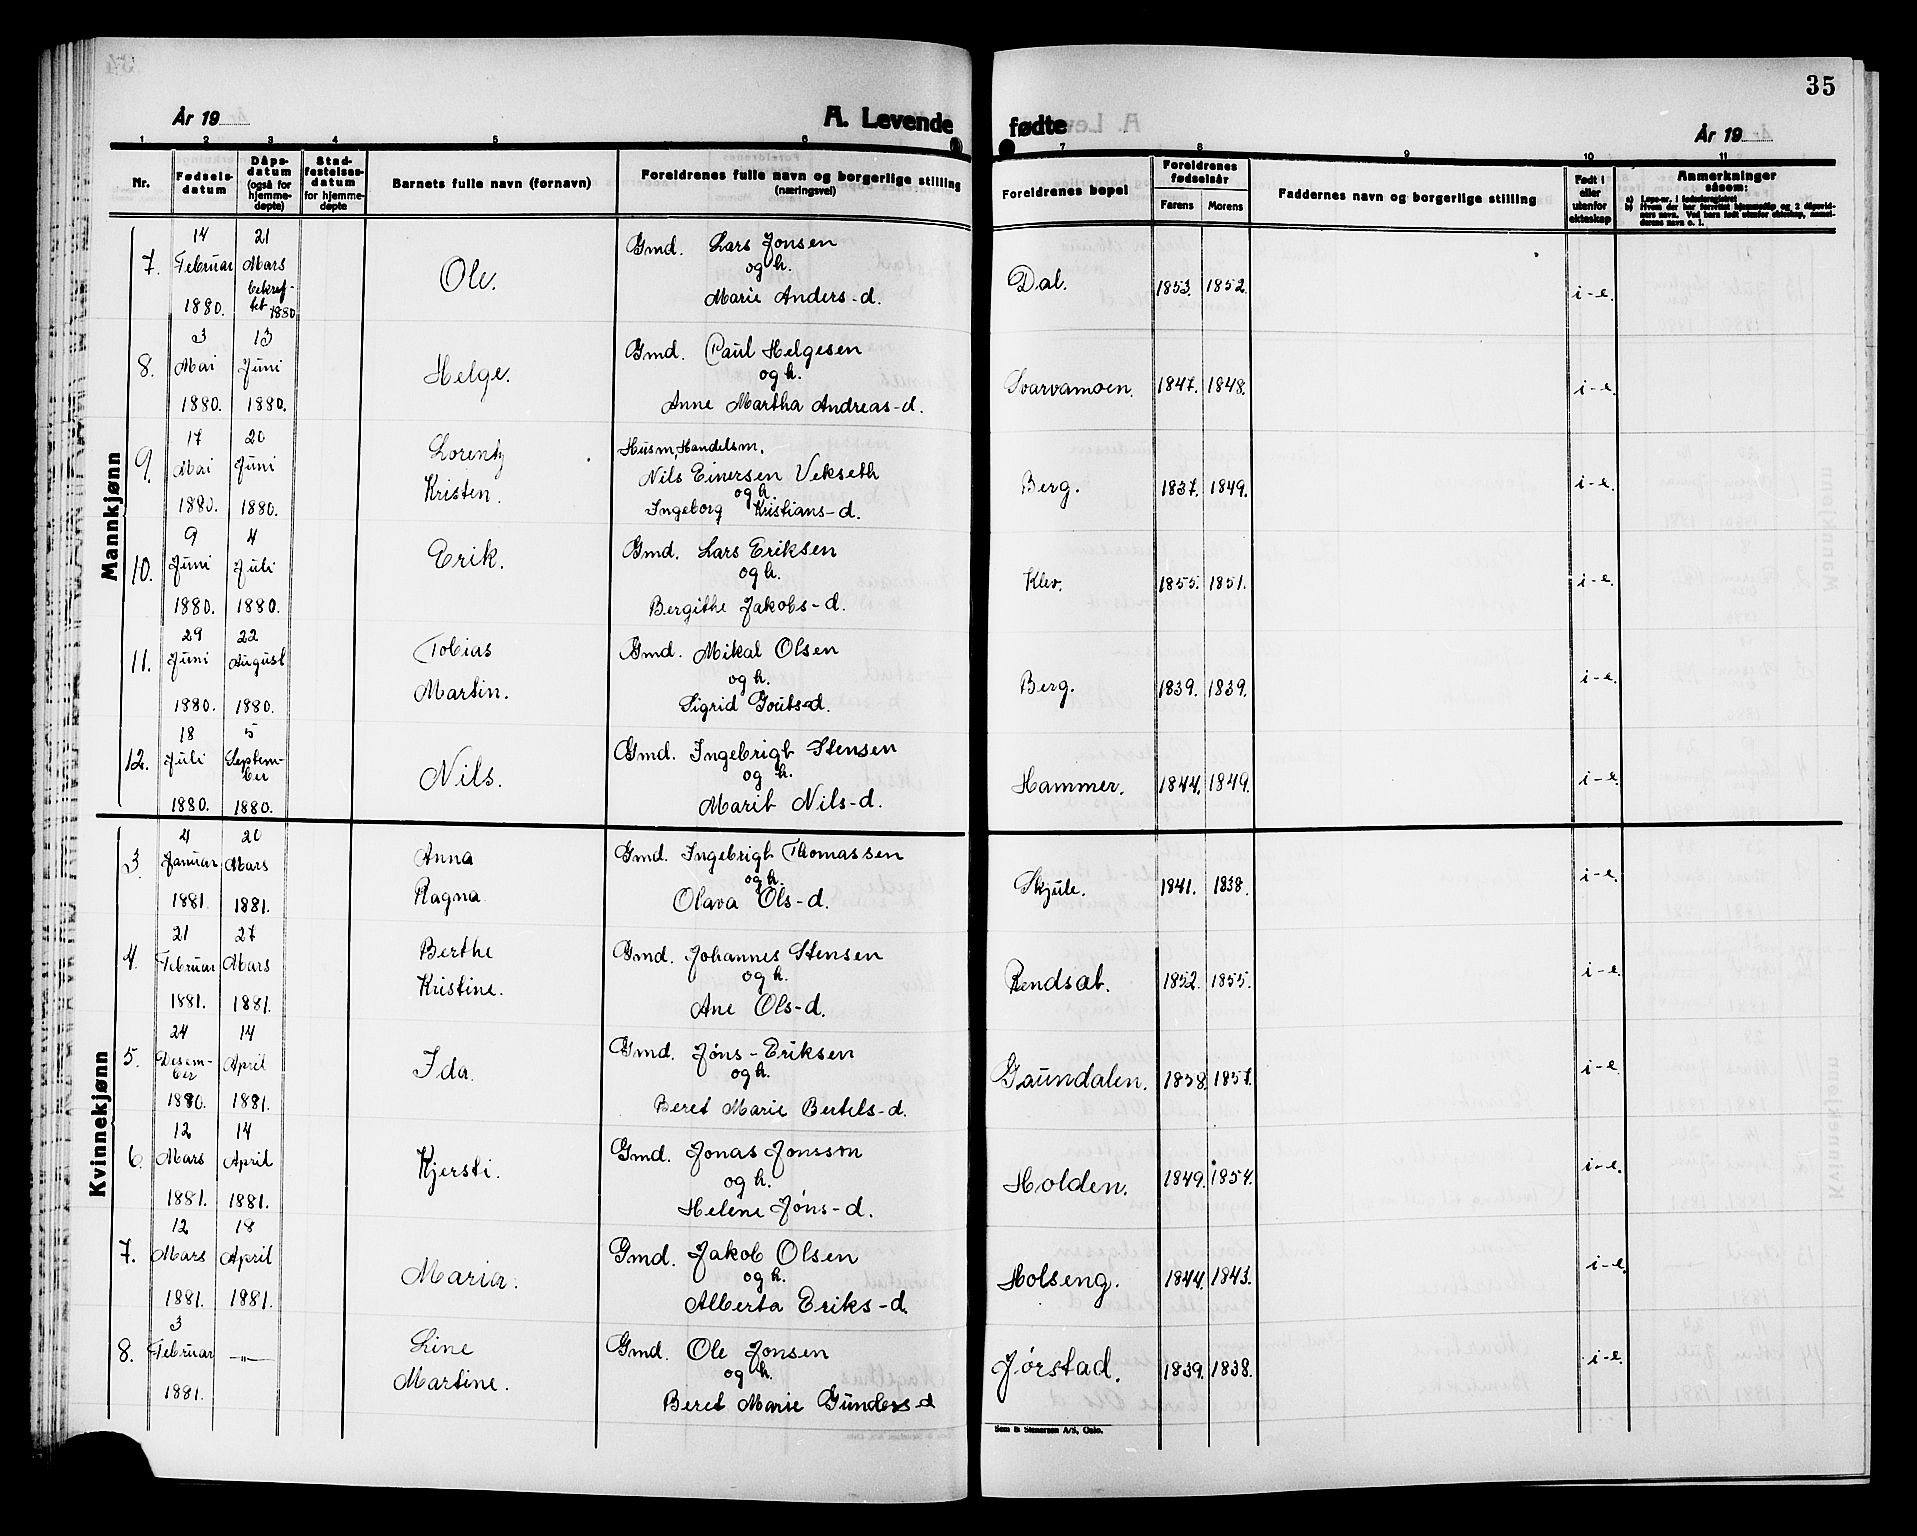 35
År 19
A. Levende fødte
År 19
1 2 3 4 5 6 7 8 9 10 11
Nr.
Fødsels-
datum
Dåps-
datum
(også for
hjemme-
døpte)
Stad-
festelses-
datum
for hjemme-
døpte
Barnets fulle navn (fornavn)
Foreldrenes fulle navn og borgerlige stilling
(næringsvei)
Foreldrenes bopel
Foreldrenes
fødselsår
Farens Morens
Faddernes navn og borgerlige stilling
Født i
eller
utenfor
ekteskap
Anmerkninger
såsom:
Mannkjønn
7. 14 Februar 1880. 21 Mars bekref-tet 1880 Ole. Gmd. Lars Jonsen
og h.
Marie Anders-d. Dal. 1853. 1852. i-e.
8. 3 Mai 1880. 13 Juni 1880. Helge. Gmd. Paul Helgesen
og h.
Anne Martha Andreas-d. Svarvamoen. 1847. 1848. i-e.
9. 17 Mai 1880. 20 Juni 1880. Lorentz
Kristen. Husm, Handelsm.
Nils Einersen Vekseth
og h.
Ingeborg Kristians-d. Berg. 1837. 1849. i-e.
10. 9 Juni 1880. 4 Juli 1880. Erik. Gmd. Lars Eriksen
og h.
Bergithe Jakobs-d. Klev. 1855. 1851. i-e.
11. 29 Juni 1880. 22 August 1880. Tobias
Martin. Gmd. Mikal Olsen
og h.
Sigrid Goutsd. Berg. 1839. 1839. i-e.
12. 18 Juli 1880. 5 Septem-ber 1880. Nils. Gmd. Ingebrigt Stensen
og h.
Marit Nils-d. Hammer. 1844. 1849. i-e.
Kvinnekjønn
3. 4 Januar 1881. 20 Mars 1881. Anna
Ragna. Gmd. Ingebrigt Thomassen
og h.
Olava Ols-d. Skjule. 1841. 1838. i-e.
4. 21 Februar 1881. 27 Mars 1881. Berthe
Kristine. Gmd. Johannes Stensen
og h.
Ane Ols-d. Rendsæt. 1852. 1855. i-e.
5. 24 Desem-ber 1880. 14 April 1881. Ida. Gmd. Jøns-Eriksen
og h.
Beret Marie Bertels-d. Gaundalen. 1838. 1857. i-e.
6. 12 Mars 1881. 14 April 1881. Kjersti. Gmd. Jonas Jonsson
og h.
Helene Jøns-d. Holden. 1849. 1854. i-e.
7. 12 Mars 1881. 18 April 1881. Maria. Gmd. Jakob Olsen
og h.
Alberta Eriks-d. Holseng. 1844. 1843. i-e.
8. 3 Februar 1881. —"— Line
Martine. Gmd. Ole Jonsen
og h.
Beret Marie Gunders-d Jørstad. 1839. 1838. i-e.
Sem & Stenersen A/S, Oslo.